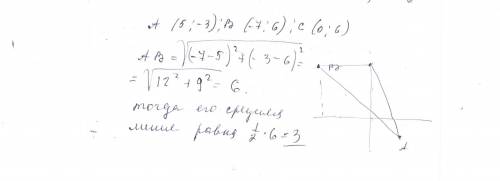 A (5;-3); B (-7;6); C (0;6)
AB = √(-7-5)²+(-3-6)² =
= √12²+9² = 6.
тогда его средняя
линия равна 1/2·6=3
B
A